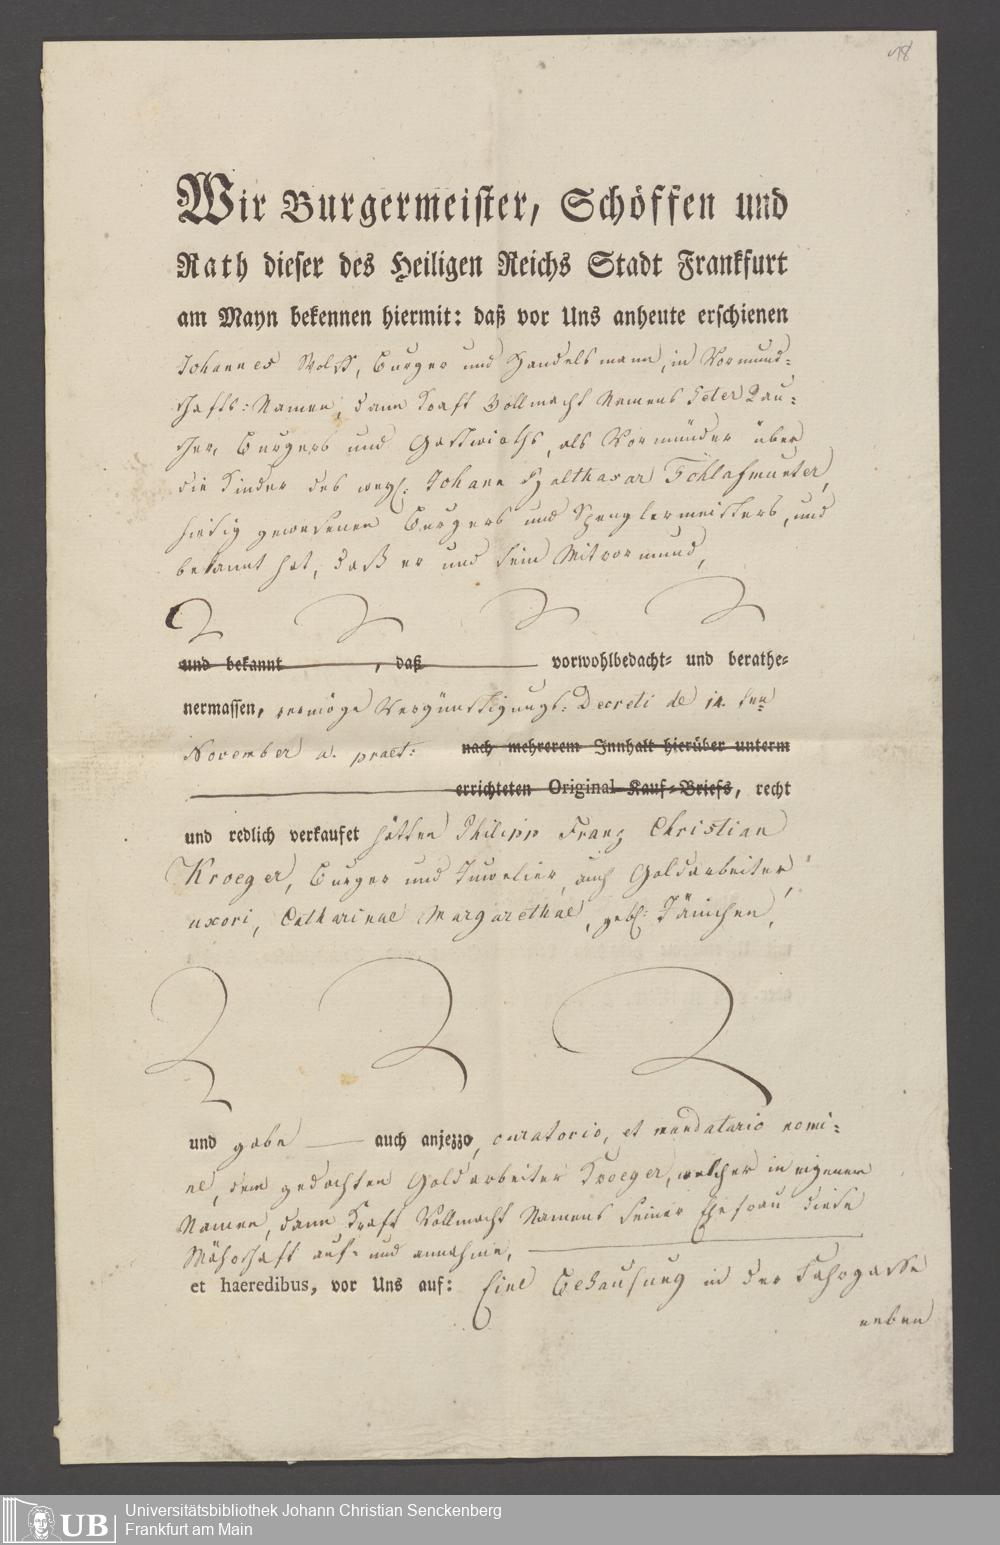 18
Wir Burgermeister, Schöffen und
Rath dieser des Heiligen Reichs Stadt Frankfurt
am Mayn bekennen hiermit: daß vor Uns anheute erschienen
Johannes Wolff, Burger und Handelsmann, in Vormund-
schafts: Namen, dann Kraft Vollmacht Namens Peter Lau-
Burgers und Gastwirths, als Vormünder über
die Kinder des weyl: Johann Balthasar Schlafmunter,
hiesig gewesenen Burgers und Spenglermeisters, und
bekannt hat, daß er und sein Mitvormund,
und bekannt , daß vorwohlbedacht- und berathe-
nermassen, vermöge Vergünstigungs: Decreti de 14. ten
November a. praet: nach mehrerem Innhalt hierüber unterm
errichteten Original-Kauf-Briefs, recht
und redlich verkaufet hätten Philipp Franz Christian
Kroeger, Burger und Juwelier, auch Goldarbeiter,
uxori, Catharinae Margarethae, gebl:
und gebe auch anjezzo, curatorio, et mandatario nomi-
ne, dem gedachten Goldarbeiter Kroeger, welcher in eigenem
Namen, dann Kraft Vollmacht Namens seiner Ehefrau diese
Währschaft auf- und annahme,
et haeredibus, vor Uns auf: Eine Behausung in der Fahrgasse
neben
UB
Universitätsbibliothek Johann Christian Senckenberg
Frankfurt am Main